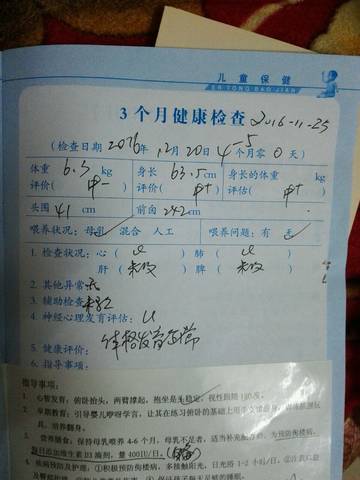 儿童保健
ER TONG BAO JIAN
3个月健康检查 2016-11-25
(检查日期 2016年12月20日 4个月零0天)
体重 6.5 kg 身长 63.5cm 身长的体重 kg
评价( 中- ) 评价( 中+ ) 评估( 中+ )
头围 41 cm 前囟 2×2 cm
喂养状况:母乳 混合 人工 喂养问题:有 无
1. 检查状况:心( ) 肺( )
肝( 未及 ) 脾( 未及 )
2. 其他异常: 无
3. 辅助检查:
4. 神经心理发育评估:
5. 健康评价: 体格发育正常
6. 指导事项:
指导事项:
1. 心智发育:俯卧抬头,两臂撑起,抱坐是头稳定,视性跟随180度。
2. 早期教育:引导婴儿咿呀学言,让其在练习俯卧的基础上用
具,培养翻身。
3. 营养膳食:保持母乳喂养4-6个月,母乳不足者,适当补充配方奶,为预防佝偻病,
每日添加维生素D3滴剂,量400IU/日。
4. 疾病预防及护理:①积极预防佝偻病,多接触阳光,日光浴1-2小时/日。②注意口腔